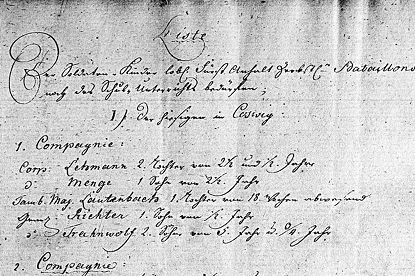 Liste
Der Soldaten-Kinder lobl. Fürst Anhalt Zerbst. Bataillons
noch des Schul-Unterrichts bedürfen;
1) der hiesigen in Coswig.
1. Compagnie:
Corp: Lehmann 2. Töchter von 2½ und ½ Jahr
d: Menge 1. Sohn von 2½ Jahr
Tamb. Maj. Lautenbach 1. Tochter von 18. Wochen abwesend
Richter 1. Sohn von ½ Jahr
Krahnwolf 2. Söhne von 5. Jahr u. ¾ Jahr
2. Compagnie: